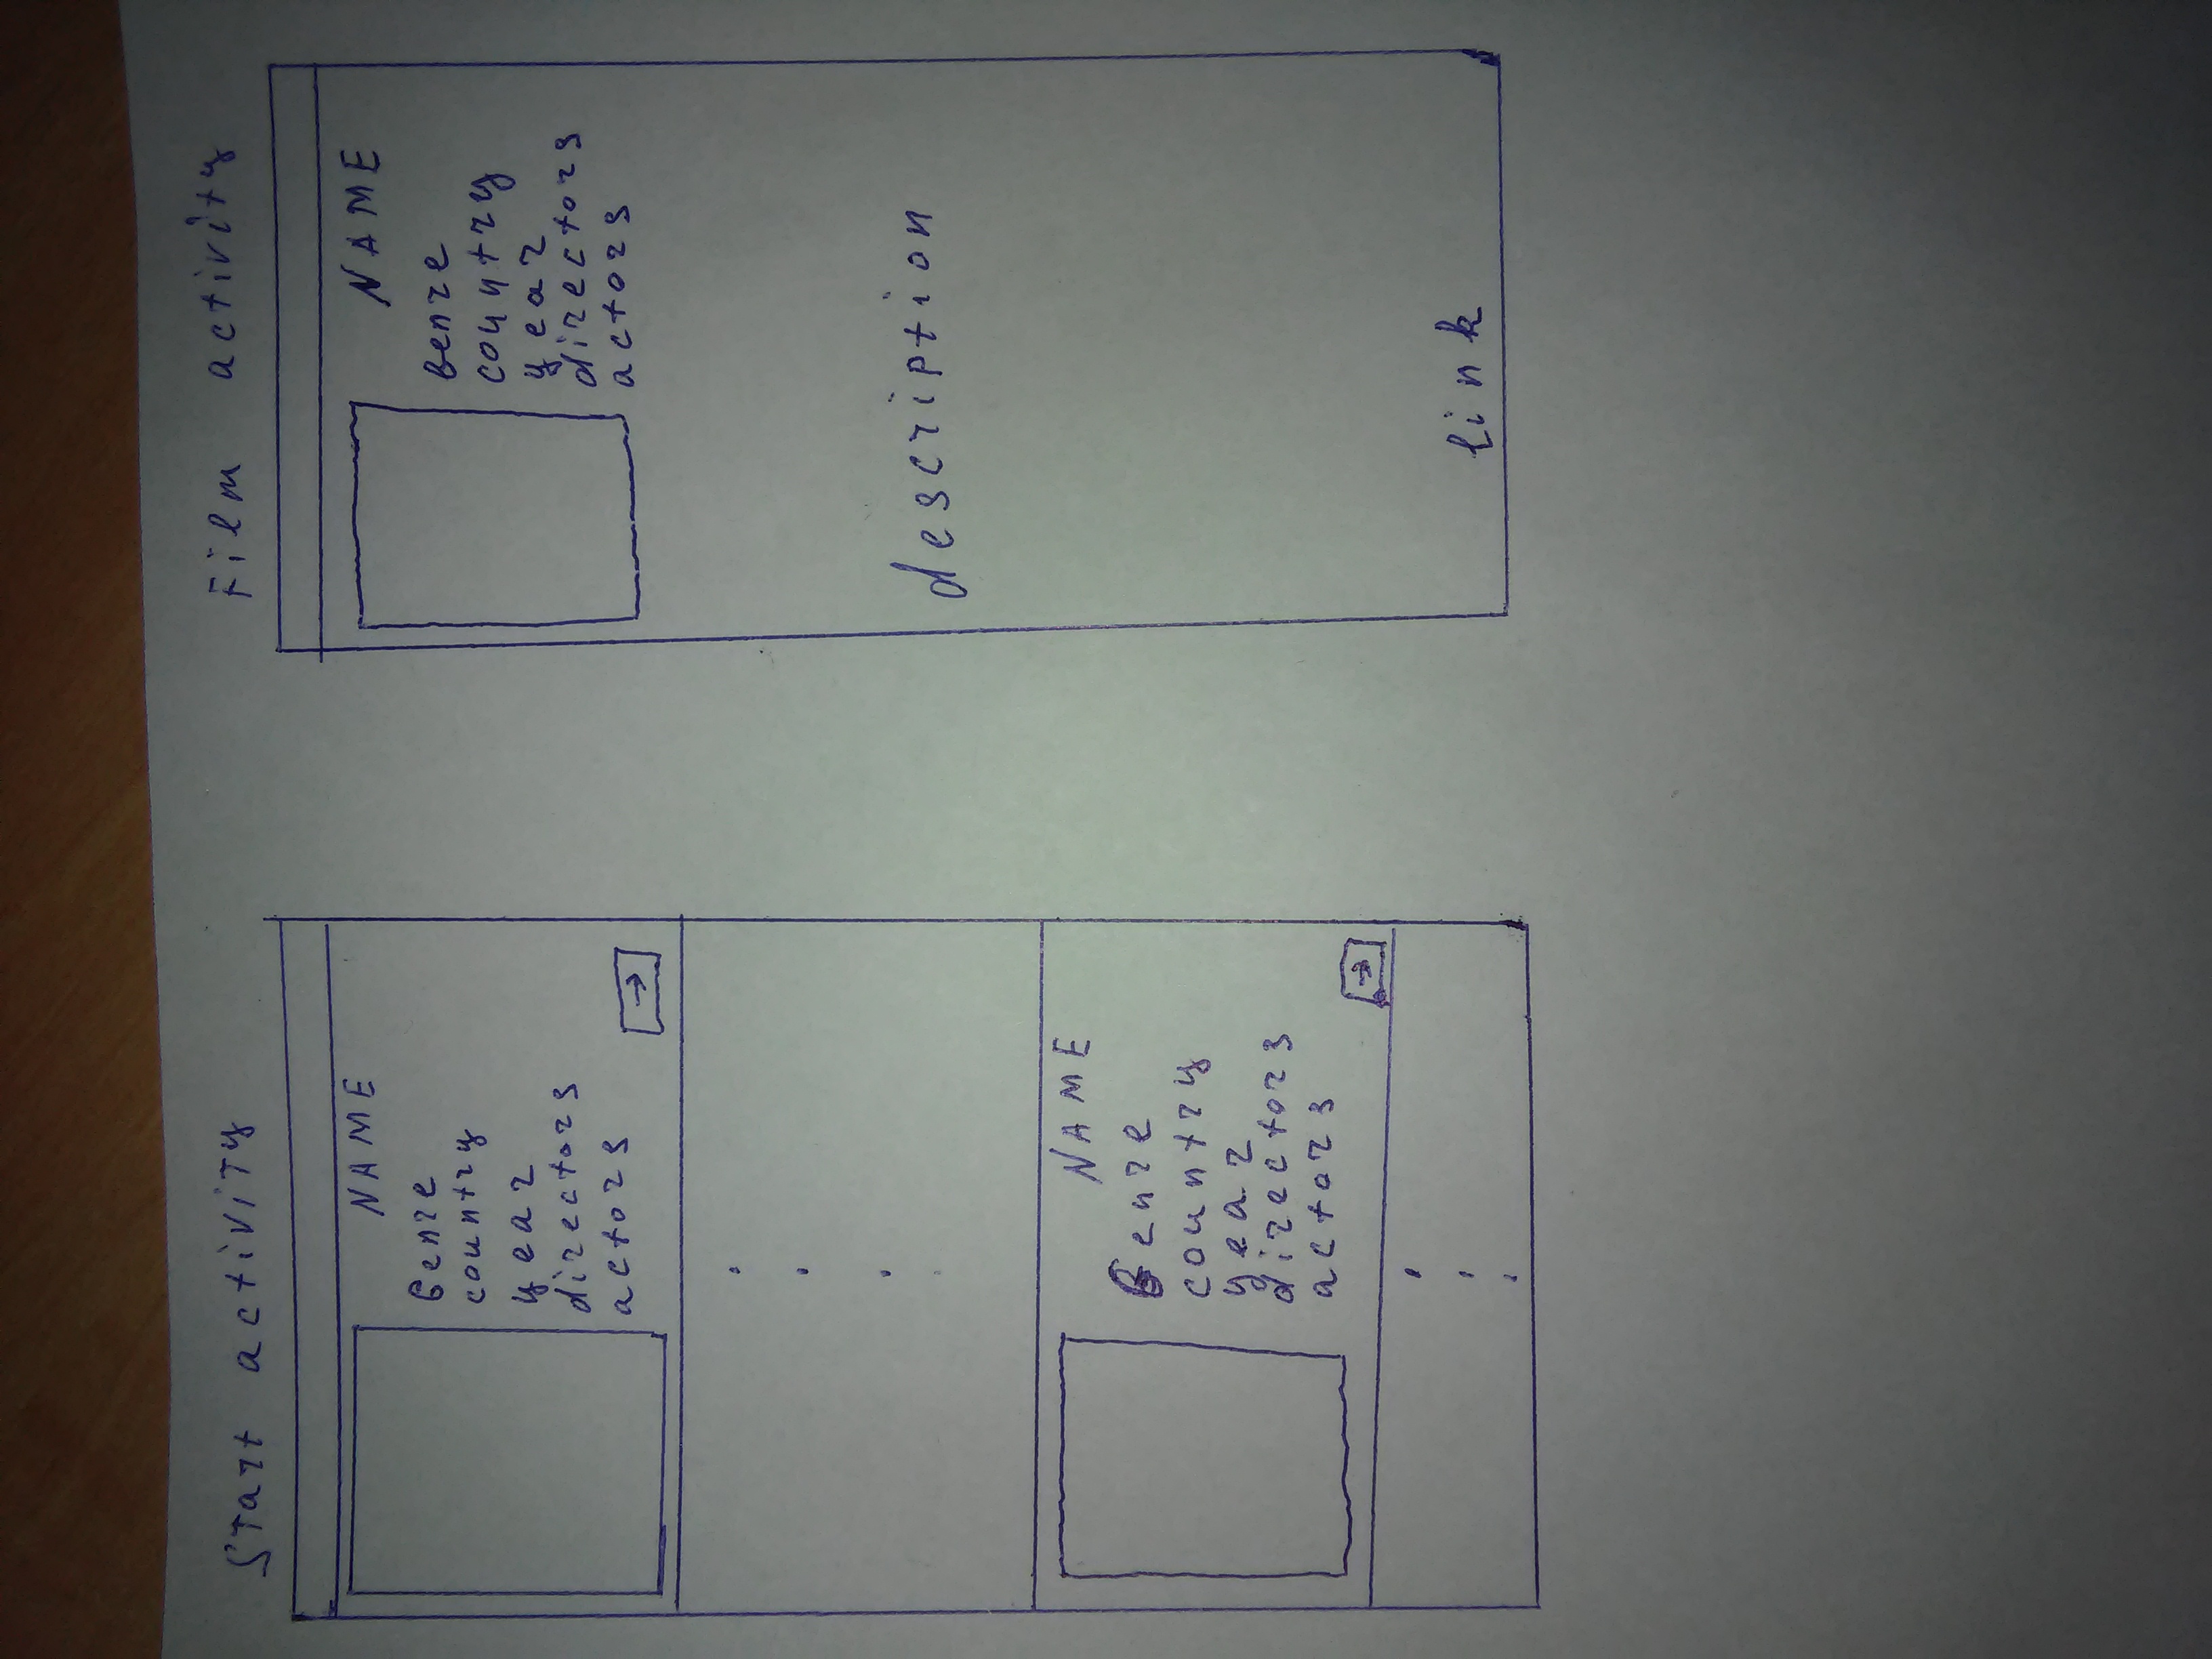 Start activity
NAME
Genre
country
year
directors
actors
→
NAME
Genre
country
year
directors
actors
→
Film activity
NAME
Genre
country
year
directors
actors
description
link